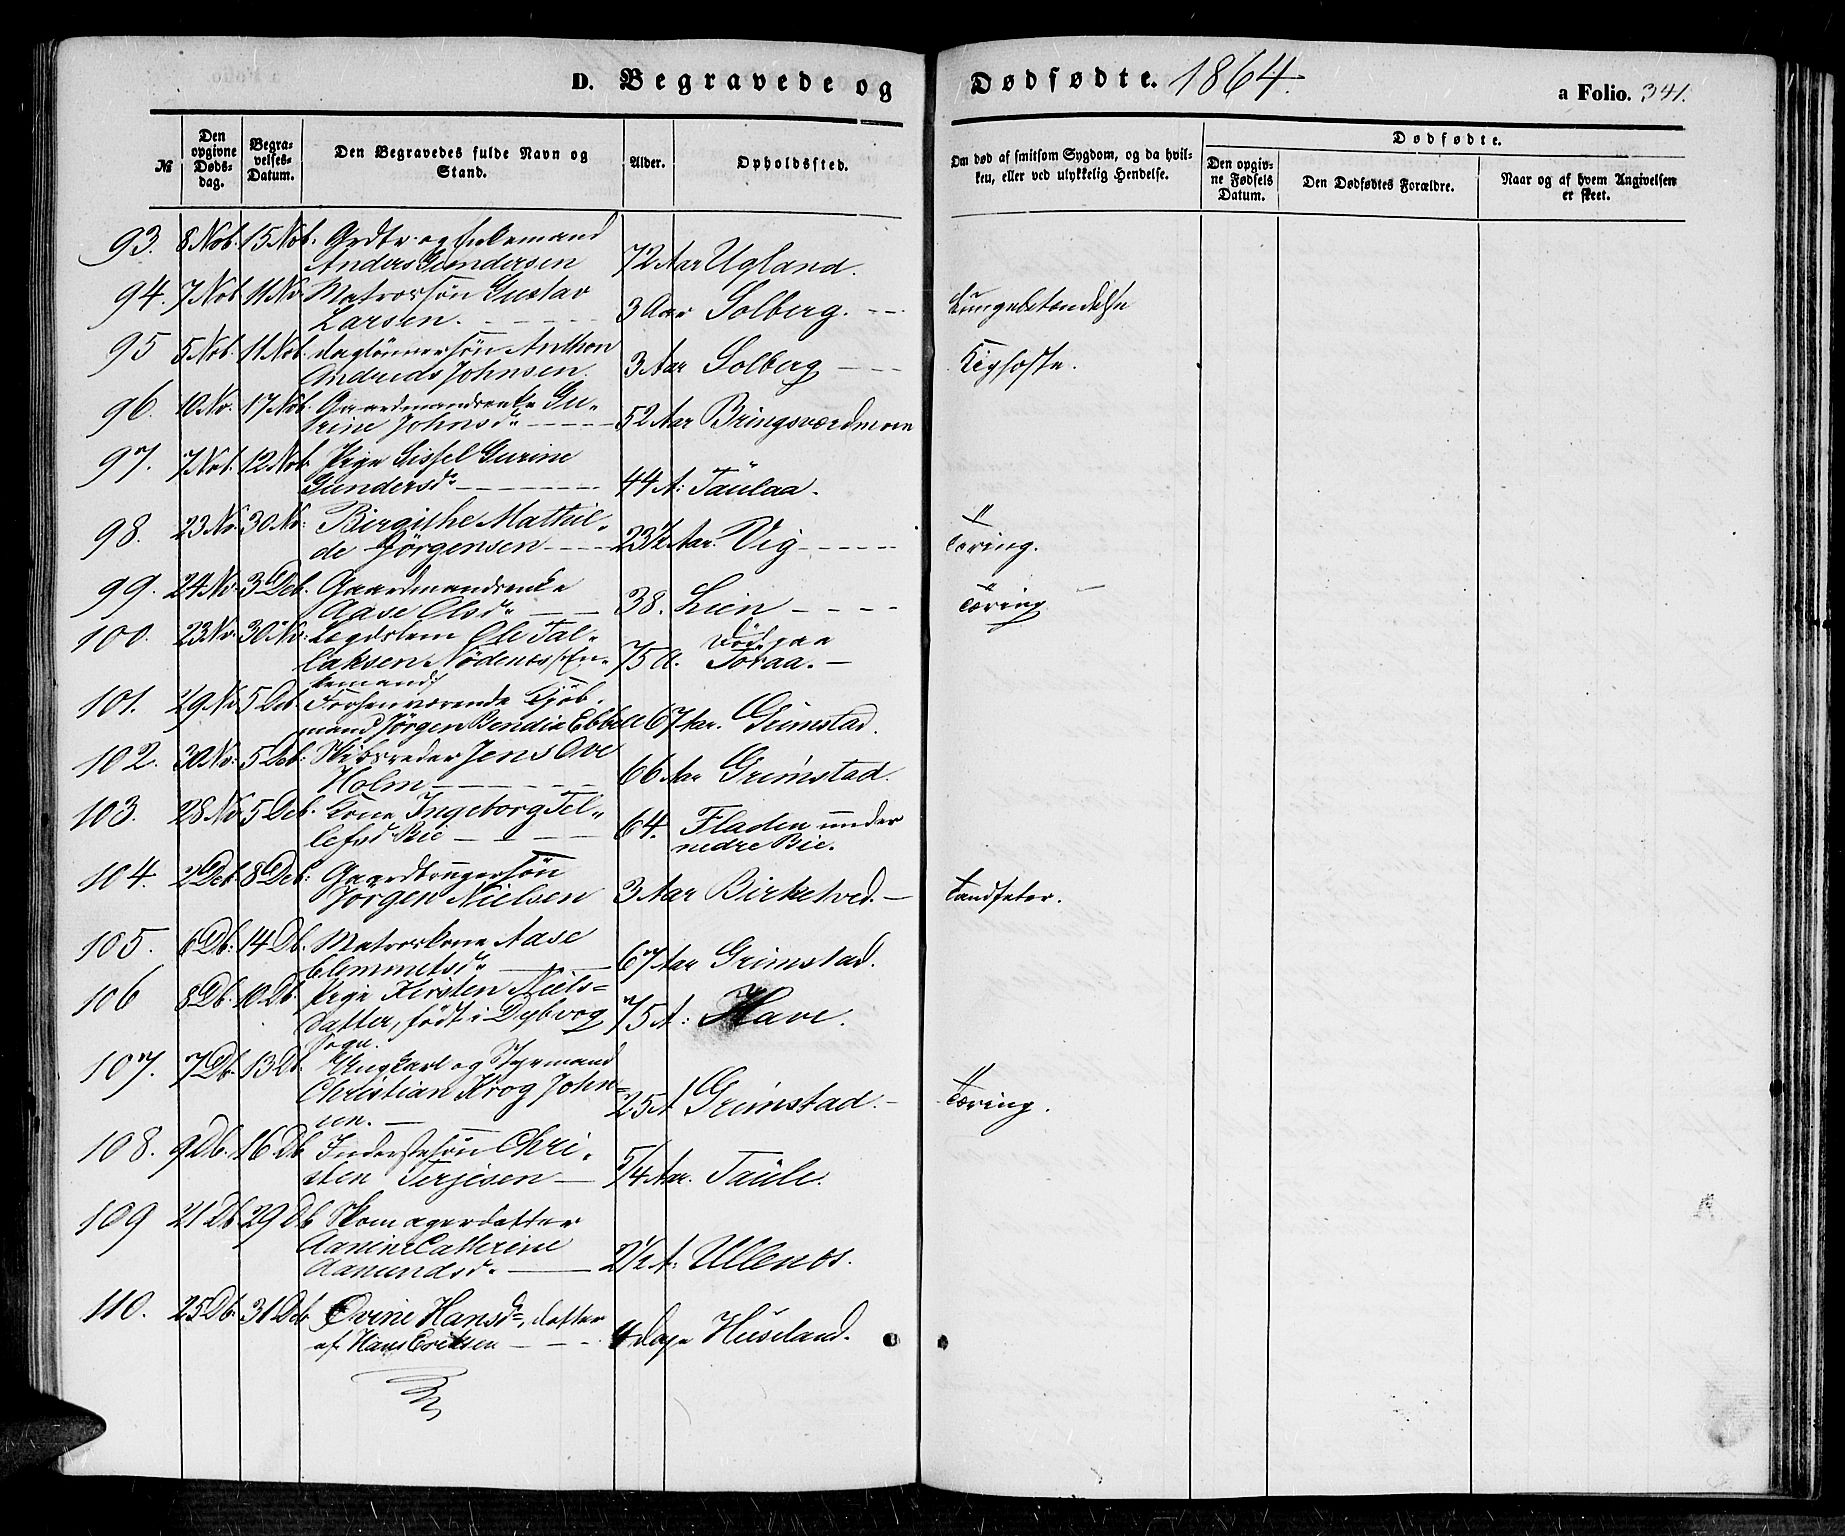 D. Begravede og Dødfødte. 1864.
a Folio. 341.
№
Den opgivne Døds-dag.
Begra-velses-Datum.
Den Begravedes fulde Navn og Stand.
Alder.
Opholdssted.
Om død af smitsom Sygdom, og da hvil-ken, eller ved ulykkelig Hendelse.
Dødfødte.
Den opgiv-ne Fødsels Datum.
Den Dødfødtes Forældre.
Naar og af hvem Angivelsen er skeet.
93. 8 Nob. 15 Nob. Grdbr. og Enkemand
Anders Gundersen 72 Aar Ugland.
94. 7 Nob 11 No Matrossön Gustav
Larsen. 3 Aar Solberg. Lungebetændelse
95 5 Nob. 11 Nob. daglönnersön Anthon
Andreas Johnsen. 3 Aar Solberg Kighoste.
96. 10 No. 17 Nob. Gaardmandsenke Gu-
rine Johnsd. 52 Aar Bringsværdmoen
97. 7 Nob. 12 Nob. Pige Sissel Gurine
Gundersd. 44 A: Taulaa.
98. 23 No. 30 No. Birgithe Mathil-
de Jörgensen 23 1/2 Aar. Vig Tæring.
99. 24 No. 3 Deb. Gaardmandsenke
Aase Olsd. 38. Lien Tæring
100. 23 No. 30 No. Lægdslem Ole Tal-
laksen Nödenæs, En-
kemand 75 A. Död paa
Toraa.
101. 29 No 5 Deb. Forhenværende Kjöb-
mand Jörgen Bendix Ebbell 67 Aar. Grimstad.
102. 30 No. 5 Deb. Skibsreder Jens Ove
Holm 66 Aar Grimstad.
103. 28 No 5 Deb. Kone Ingeborg Tel-
lefsd Bie 64. Fladen under
nedre Bie.
104. 2 Deb. 8 Deb. Gaardbrugersön
Jörgen Nielsen 3 Aar Birketved. Tandfeber.
105. 6 Db. 14 Db. Matroskone Aase
Clemmetsd. 67 Aar Grimstad.
106 8 Db. 10 Db. Pige Kirsten Niels-
datter, födt i Dybvog
Sogn. 75 A: Have.
107. 7 Db. 13 Db. Ungkarl og Styrmand
Christian Krog John-
sen. 25 A Grimstad. Tæring.
108. 9 Db. 16 Db Inderstesön Chri-
sten Terjesen 5/4 Aar. Taule.
109 21 Db 29 Db Skomagerdatter
Aanine Cathrine
Aanundsd. 2 1/2 A: Ullenes.
110. 25 Db. 31 Deb. Ovine Hansd., datter
af Hans Eriksen 4 dage Huseland.